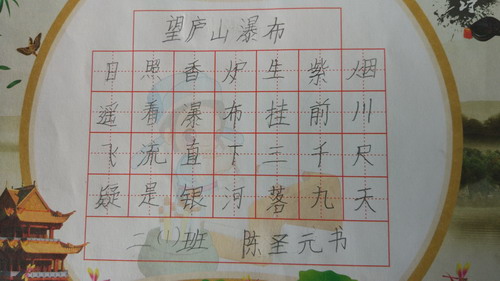 望庐山瀑布
日照香炉生紫烟
遥看瀑布挂前川
飞流直下三千尺
疑是银河落九天
二(1)班 陈圣元书